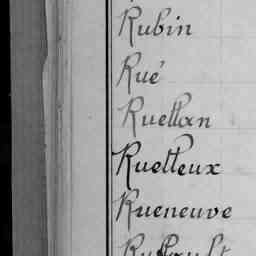 Rubin
Rué
Ruellan
Ruelleux
Rueneuve